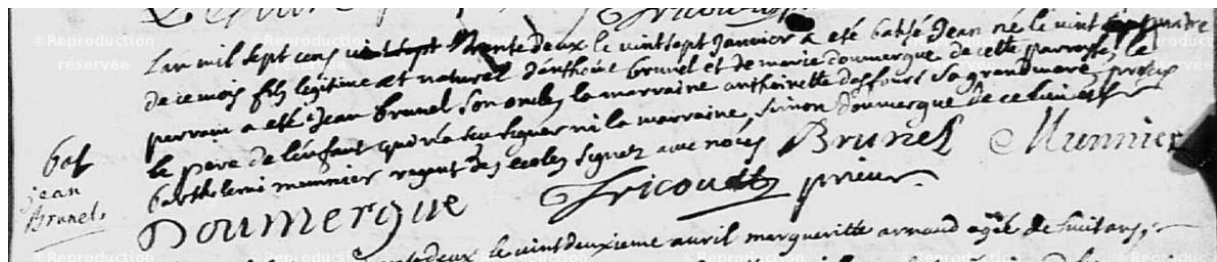 Lan mil sept cens trente deux le vint sept Janvier a eté batisé Jean né le vint
de ce mois fils legitime et naturel d'anthoine brunel et de marie doumergue de cette parroisse, le
parrain a eté Jean brunel son oncle, la marraine anthoinette dasfours sa grand mere, presens
le pere de l'enfant qui n'a seu signer ni la marraine, simon doumergue de ce lieu et
barthelemi munnier regent des ecoles signez avec nous Brunel Munnier
bat
jean
Brunel.
Doumergue Fricoudt prieur.
le vint deuxieme avril margueritte arnaud agée de huit ans,